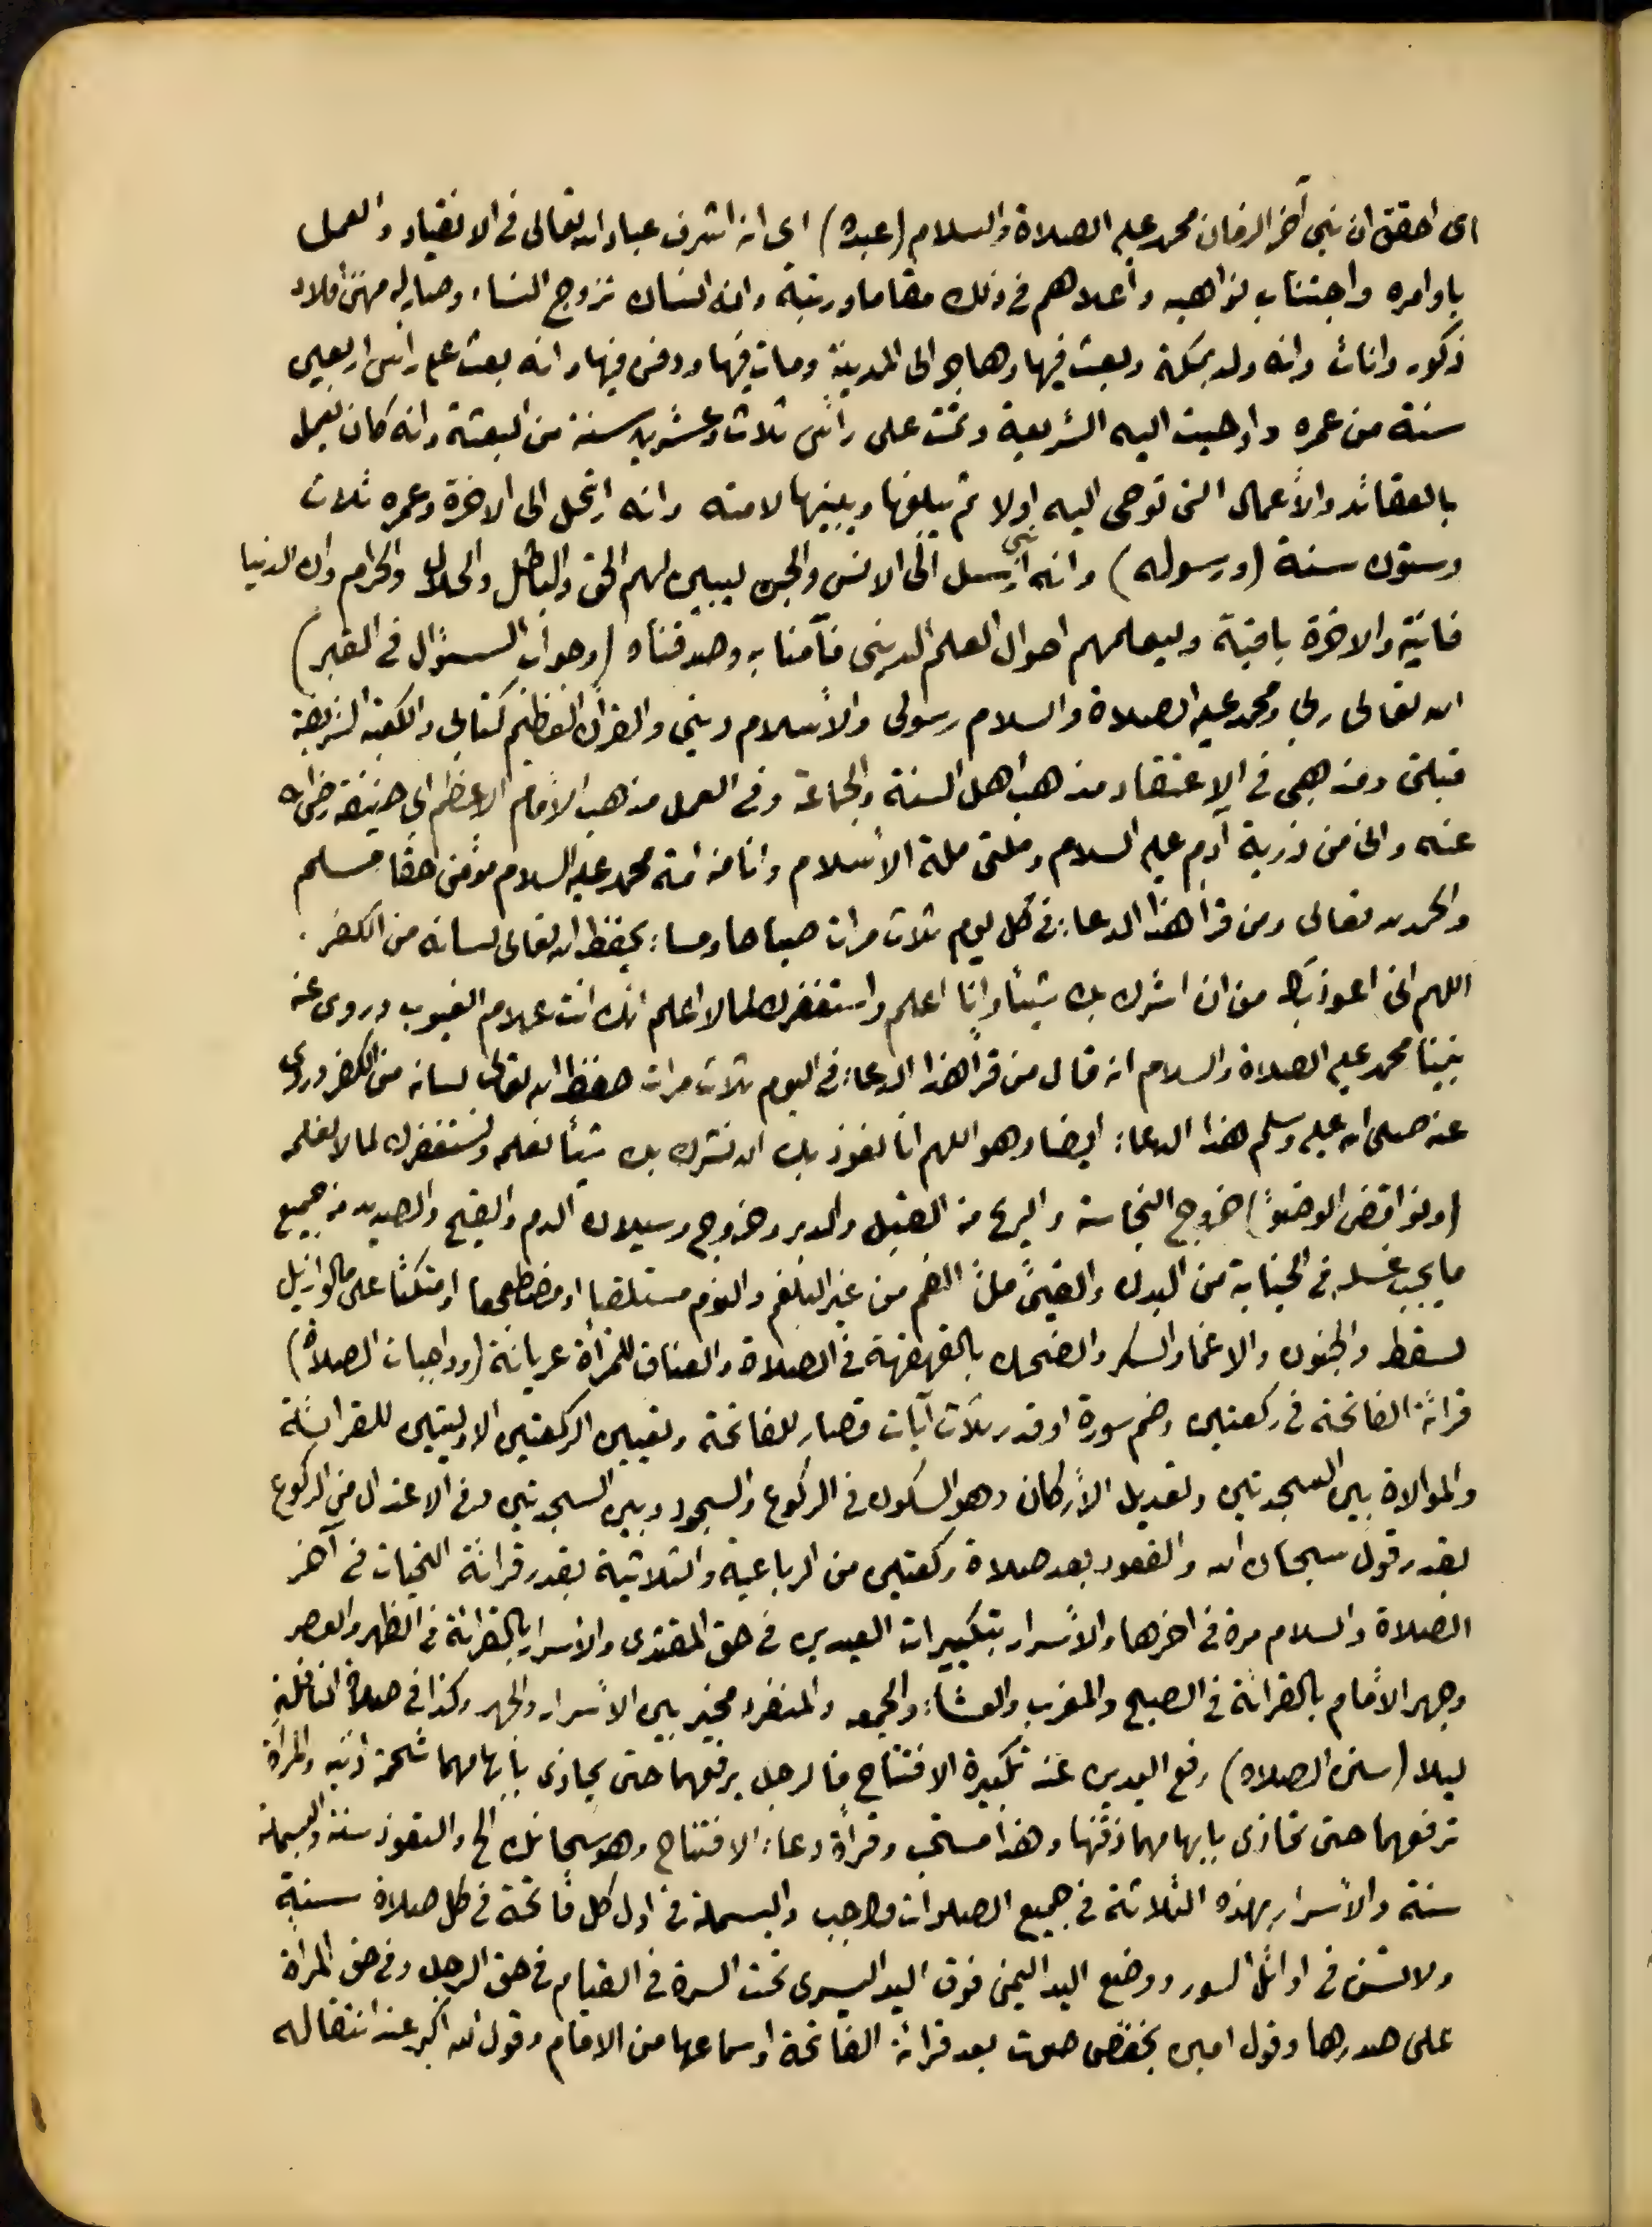 اى احقق ان نبى آخر الزمان محمد عليه الصلاة والسلام (عبده) اى انه اشرف عباد الله تعالى فى الانقياد والعمل
باوامره واجتناب نواهيه واعلاهم فى ذلك مقاما ورتبة وانه انسان تزوج النساء وصار له منهن اولاد
ذكور واناث وانه ولد بمكة وبعث فيها وهاجر الى المدينة ومات فيها ودفن فيها وانه بعث على رأس اربعين
سنة من عمره واوحيت اليه الشريعة وتمت على رأس ثلاث وعشرين سنة من البعثة وانه كان يعمل
بالعقائد والأعمال التى توحى اليه اولا ثم يبلغها ويبينها لامته وانه ارتحل الى الاخرة وعمره ثلاث
وستون سنة (ورسوله) وانه نبى ارسل الى الانس والجن ليبين لهم الحق والباطل والحلال والحرام وان الدنيا
فانية والاخرة باقية وليعلمهم احوال العلم الدينى فآمنا به وصدقناه (وجواب السؤال فى القبر)
الله تعالى ربى ومحمد عليه الصلاة والسلام رسولى والأسلام دينى والقرآن العظيم كتابى والكعبة الشريفة
قبلتى ومذهبى فى الاعتقاد مذهب اهل السنة والجماعة وفى العمل مذهب الامام الاعظم ابى حنيفة رضى الله
عنه وانى من ذرية آدم عليه السلام وملتى ملة الأسلام وانا من امة محمد عليه السلام مؤمن حقا مسلم
والحمد لله تعالى ومن قرأ هذا الدعاء فى كل يوم ثلاث مرات صباحا ومساء يحفظ الله تعالى لسانه من الكفر .
اللهم انى اعوذ بك من ان اشرك بك شيئأ وانا اعلم واستغفرك لما لا اعلم انك انت علام الغيوب وروى عنه
نبينا محمد عليه الصلاة والسلام انه قال من قرأ هذا الدعاء فى اليوم ثلاث مرات حفظ الله تعالى لسانه من الكفر وروى
عنه صلى الله عليه وسلم هذا الدعاء ايضا وهو اللهم انا نعوذ بك ان نشرك بك شيئأ نعلمه ونستغفرك لما لا نعلمه
(ونواقض الوضؤ) خروج النجاسة والريح من القبل والدبر وخروج وسيلان الدم والقيح والصديد من جميع
ما يجب غسله فى الجنابة من البدن والقيئ ملئ الفم من غير البلغم والنوم مستلقيا او مضطجعا او متكئا على ما لو ازيل
لسقط والجنون والاغماء والسكر والضحك بالقهقهة فى الصلاة والعناق للمرأة عريانة (وواجبات الصلاة)
قرائة الفاتحة فى ركعتين وضم سورة او قدر ثلاث آيات قصار للفاتحة وتعيين الركعتين الاوليين للقرائة
والموالاة بين السجدتين وتعديل الأركان وهو السكون فى الركوع والسجود وبين السجدتين وفى الاعتدال من الركوع
بقدر قول سبحان الله والقعود بعد صلاة ركعتين من الرباعية والثلاثية بقدر قرائة التحيات فى آخر
الصلاة والسلام مرة فى اخرها والأسرار بتكبيرات العيدين فى حق المقتدى والاسرار بالقرائة فى الظهر والعصر
وجهر الأمام بالقرائة فى الصبح والمغرب والعشاء والجمعه والمنفرد مخير بين الأسرار والجهر وكذا فى صلاة النافلة
ليلا (سنن الصلاة) رفع اليدين عند تكبيرة الافتتاح فالرجل يرفعهما حتى يحاذى بابهامهما شحمة اذنيه والمرأة
ترفعهما حتى تحاذى بابهامهما ذقنها وهذا مستحب وقرأة دعاء الافتتاح وهو سبحانك الخ والتعوذ سنة والبسملة
سنة والأسرار بهذه الثلاثة فى جميع الصلوات واجب والبسملة فى اول كل فاتحة فى كل صلاة سنة
ولا تسن فى اوائل السور ووضع اليد اليمنى فوق اليد اليسرى تحت السرة فى القيام فى حق الرجل وفى حق المرأة
على صدرها وقول امين بخفض صوت بعد قرائة الفاتحة او سماعها من الامام وقول الله اكبر عند انتقاله